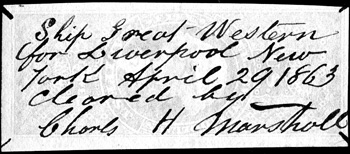 Ship Great Western
for Liverpool New
York April 29 1863
cleared by
Charls H Marshall